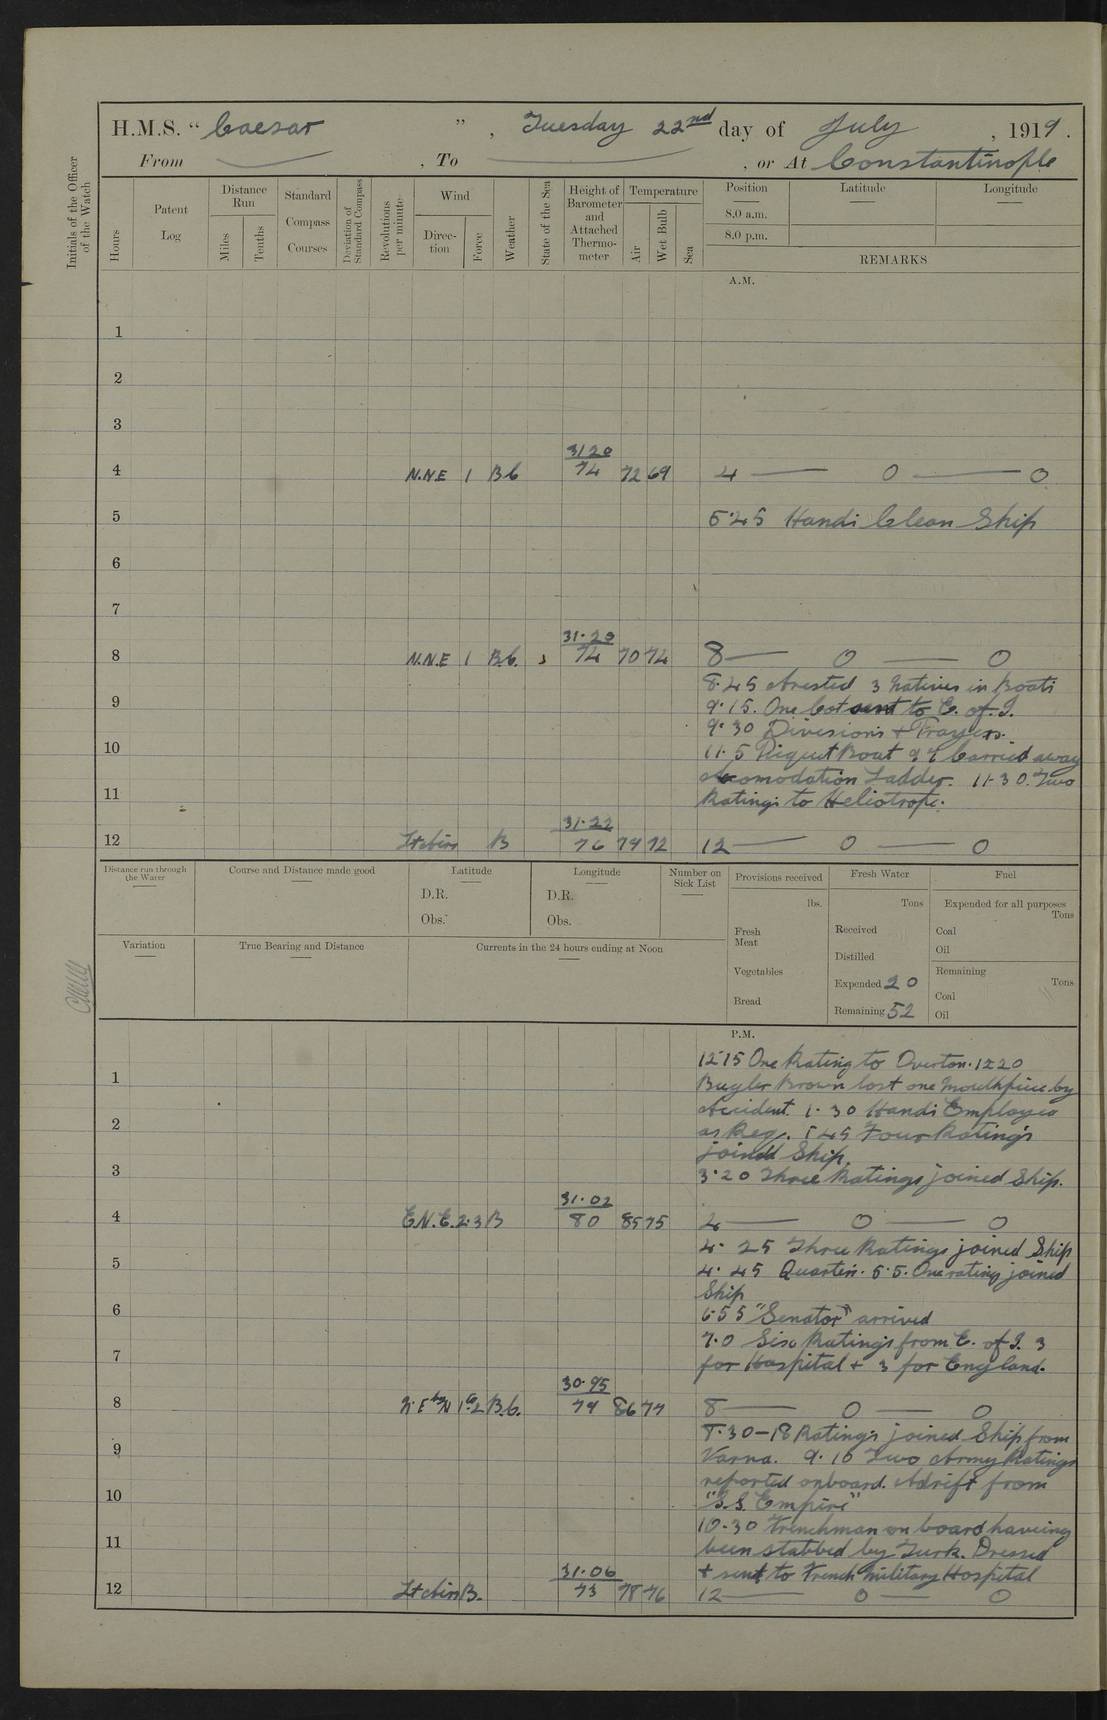 H.M.S. “ Caesar ” , Tuesday 22nd day of July , 1919 .
From , To , or At Constantinople
Initials of the Officer of the Watch
Hours
Patent Log
Distance Run
Miles
Tenths
Standard Compass Courses
Deviation of Standard Compass
Revolutions per minute
Wind
Direction
Force
Weather
State of the Sea
Height of Barometer and Attached Thermometer
Temperature
Air
Wet Bulb
Sea
Position
8.0 a.m.
8.0 p.m.
Latitude
Longitude
REMARKS
A.M.
1
2
3
31 20
4 N.N.E 1 B C 74 72 69 4 — 0 — 0
5 5.45 Hands Clean Ship
6
7
31.20
8 N.N.E 1 B.C. 74 70 74 8 — 0 — 0
8.45 Arrested 3 Natives in Boats
9 9.15. One Cot sent to E. of I.
9.30 Divisions + Prayers.
10 11.5 Piquet Boat Carried away
Accomodation Ladder. 11.30. Two
11 Ratings to Heliotrope.
31.22
12 Lt Airs B 76 74 72 12 — 0 — 0
Distance run through the Water
Course and Distance made good
Latitude
D.R.
Obs.
Longitude
D.R.
Obs.
Number on Sick List
Provisions received
lbs.
Fresh Meat
Vegetables
Bread
Fresh Water
Tons
Received
Distilled
Expended 20
Remaining 52
Fuel
Expended for all purposes
Tons
Coal
Oil
Remaining
Tons
Coal
Oil
Variation
True Bearing and Distance
Currents in the 24 hours ending at Noon
P.M.
12.15 One Rating to Overton. 12.20
1 Bugler Brown lost one Mouthpiece by
Accident. 1.30 Hands Employed
2 as Req. 1.45 Four Ratings
joined Ship.
3 3.20 Three Ratings joined Ship.
31.02
4 E.N.E. 2.3 B 80 85 75 4 — 0 — 0
4.25 Three Ratings joined Ship
5 4.45 Quarters. 5.5. One rating joined
Ship
6 6.55 "Senator" arrived
7.0 Six Ratings from E. of I. 3
7 for Hospital + 3 for England.
30.95
8 N.E by N 1 to 2 B.C. 79 86 77 8 — 0 — 0
8.30 — 18 Ratings joined Ship from
9 Varna. 9.10 Two Army Ratings
reported onboard. Adrift from
10 "S.S. Empire"
10.30 Frenchman on board haveing
11 been stabbed by Turk. Dressed
31.06 + sent to French Military Hospital
12 Lt Airs B. 73 78 76 12 — 0 — 0